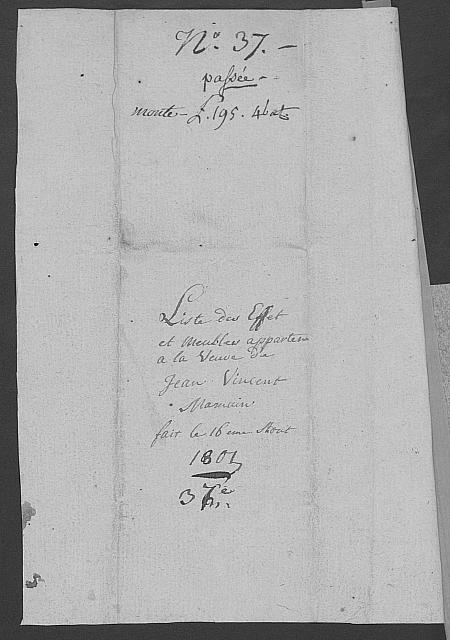 N.º 37. -
passée -
monte - £. 195. 4 batz
Liste des Effet
et Meubles apparten
a la Veuve de
Jean Vincent
Mamain
fait le 16 eme Aout
1801
37.e